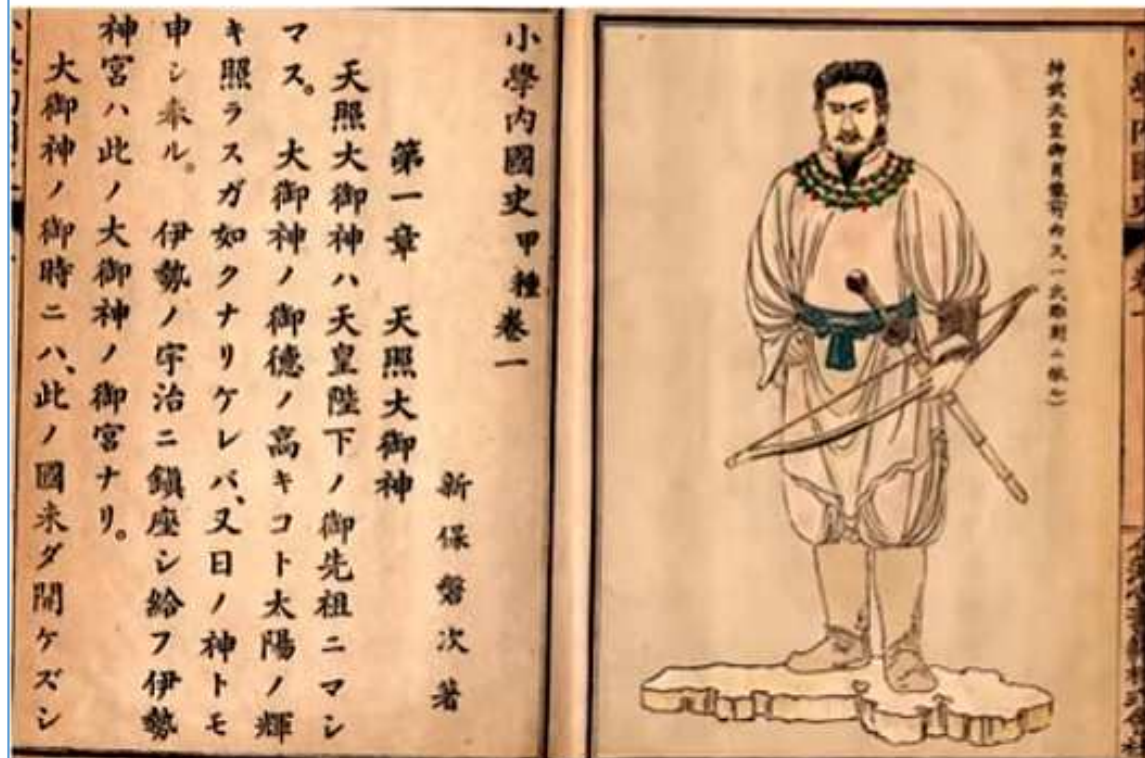 神武天皇御肖像
小學内國史
卷一
小學内國史 甲種 卷一
新保磐次著
第一章 天照大御神
天照大御神ハ天皇陛下ノ御先祖ニマシ
マス。 大御神ノ御德ノ高キコト太陽ノ輝
キ照ラスガ如クナリケレバ、又日ノ神トモ
申シ奉ル。 伊勢ノ宇治ニ鎭座シ給フ伊勢
神宮ハ此ノ大御神ノ御宮ナリ。
大御神ノ御時ニハ、此ノ國未ダ開ケズシ